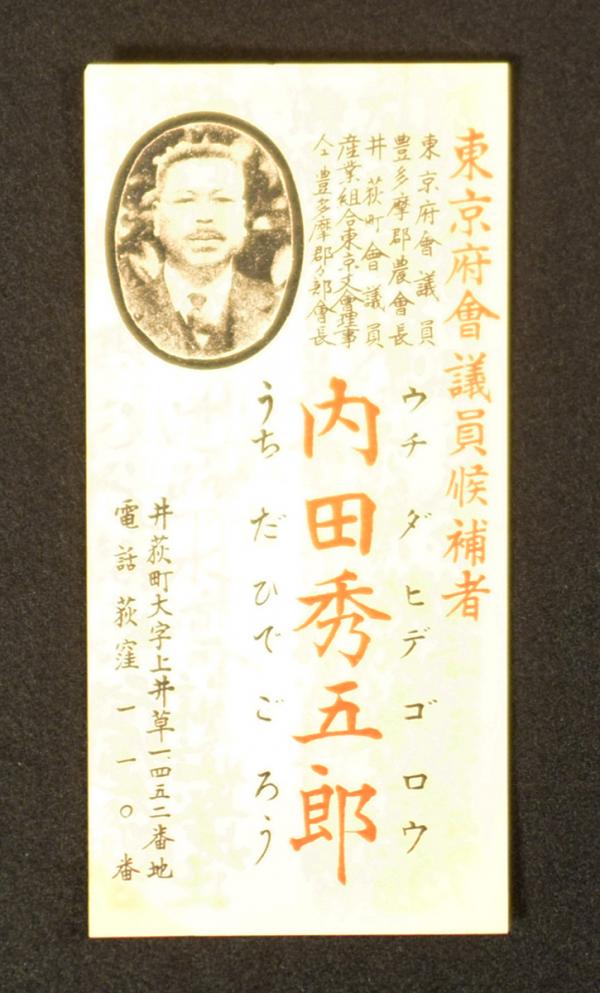 東京府會議員候補者
東京府會議員
豊多摩郡農會長
井荻町會議員
産業組合東京支會理事
仝豊多摩郡部會長
ウチダヒデゴロウ
内田秀五郎
うちだひでごろう
井荻町大字上井草一、四五二番地
電話荻窪一一〇番